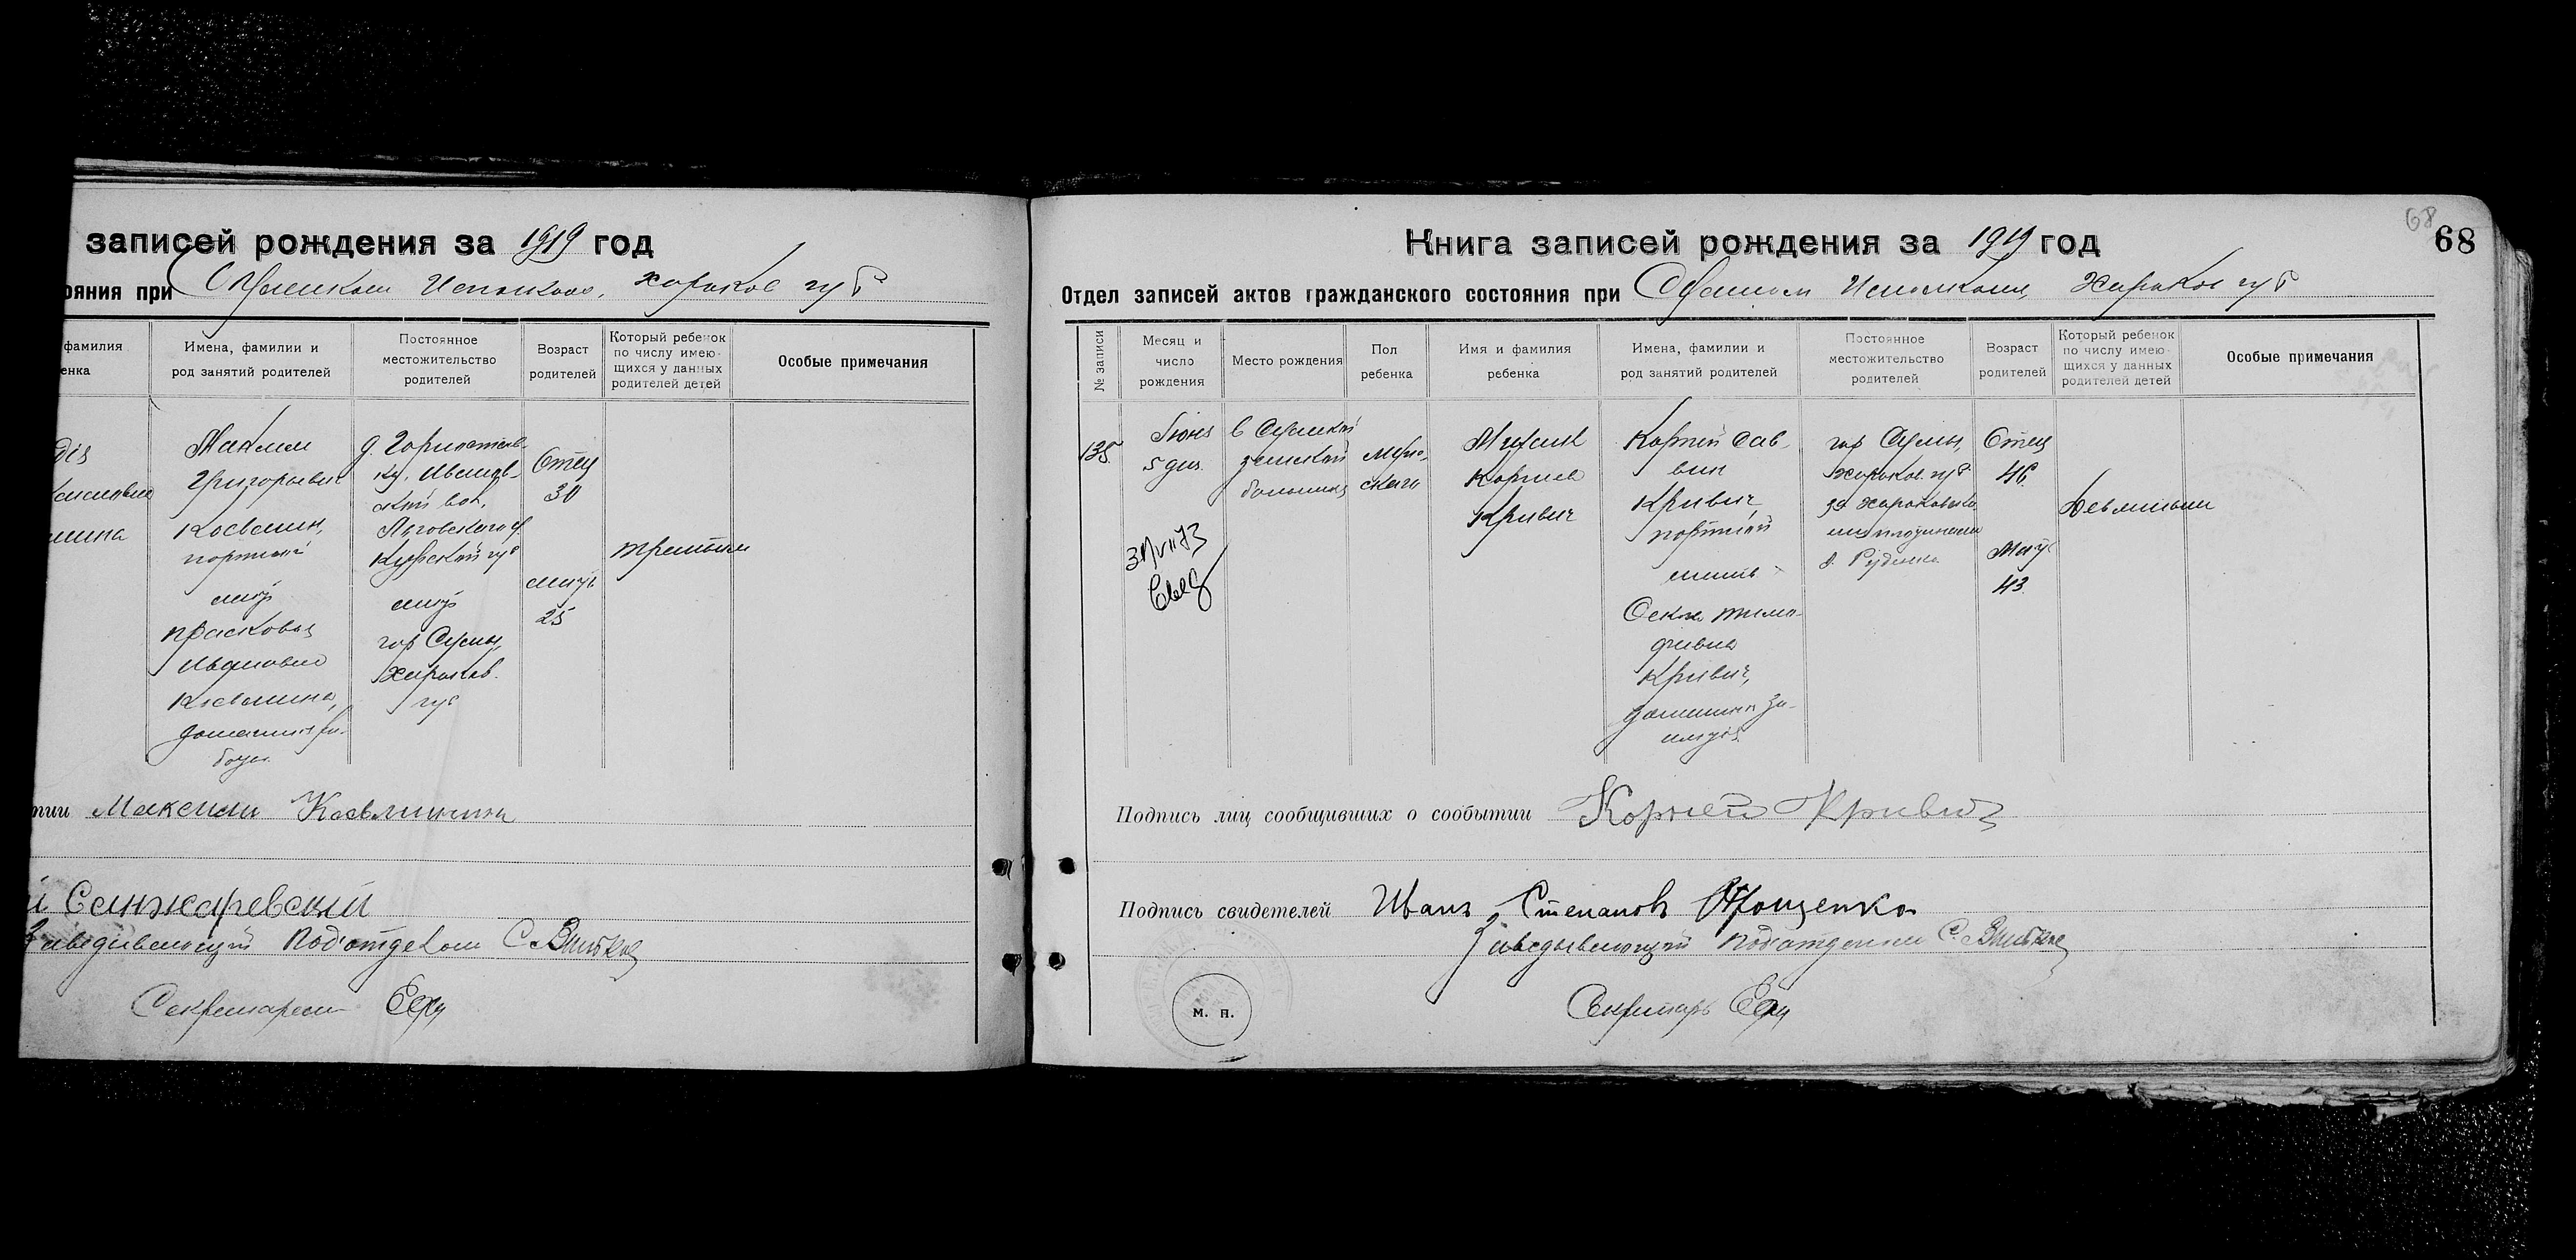 записей рождения за 1919 год
ояния при Сумском Исполкоме, Харьков губ
фамилия
енка
Имена, фамилии и
род занятий родителей
Постоянное
местожительство
родителей
Возраст
родителей
Который ребенок
по числу имею-
щихся у данных
родителей детей
Особые примечания
Максим
Григорьевич
Косьминин,
портной
мать
Прасковья
Ивановна
Косьминина,
домашн ра-
боты
Льговского у.
Курской губ
мать
гор Сумы,
Харьков.
губ
Отец
30
мать
25
третьим
тии Максим Косьминин
й Санжаревский
Заведывающий Подотделом С.
Секретарем
68
Книга записей рождения за 1919 год
68
Отдел записей актов гражданского состояния при Сумском Исполкоме, Харьков губ
№ записи
Месяц и
число
рождения
Место рождения
Пол
ребенка
Имя и фамилия
ребенка
Имена, фамилии и
род занятий родителей
Постоянное
местожительство
родителей
Возраст
родителей
Который ребенок
по числу имею-
щихся у данных
родителей детей
Особые примечания
135.
Июня
5 дня.
в Сумской
земской
больнице
мужс-
скаго
Корнеев
Кривич
Корней Сав-
вич
Кривич
портной
мать
Кривич,
домашн за-
нятия
гор Сумы,
Харьков. губ
Отец
46.
Мать
43.
Девятым
Подпись лиц сообщивших о сообытии Корней Кривич
Подпись свидетелей Иванъ Степановъ Онощенко
Заведывающий Подотделом С.
М. П.
Секретарь